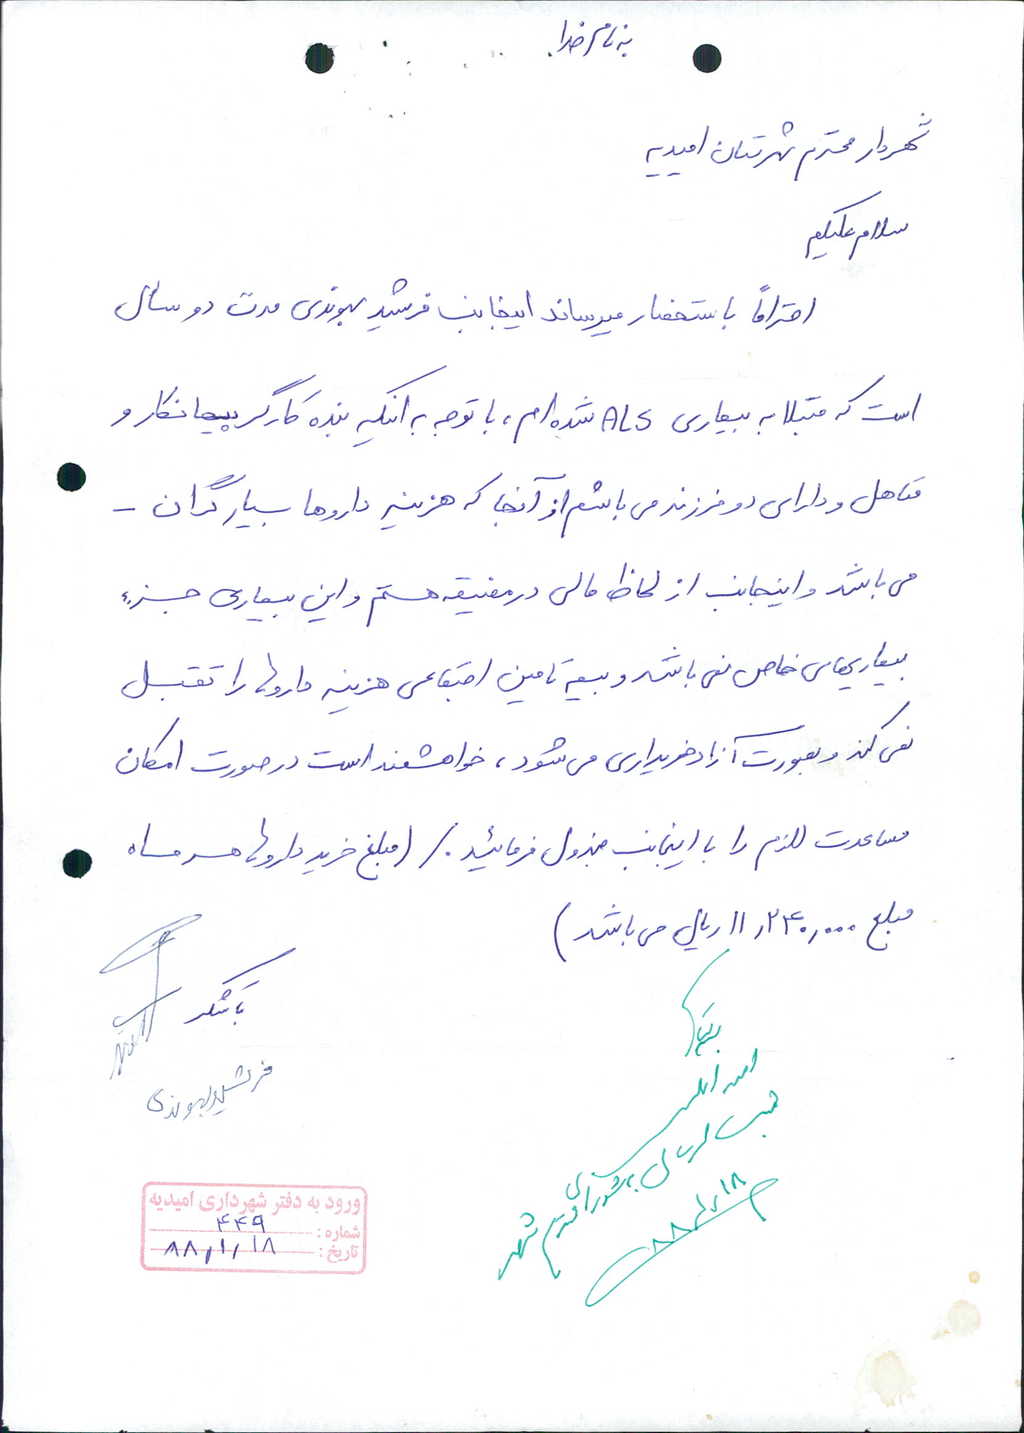 به نام خدا
شهردار محترم شهرستان امیدیه
سلام علیکم
احتراماً باستحضار میرساند اینجانب فرشید بهوندی مدت دو سال
است که مبتلا به بیماری ALS شده‌ام، با توجه به آنکه بنده کارگر پیمانکار و
متاهل و دارای دو فرزند می باشم از آنجا که هزینه داروها بسیار گران -
می باشد و اینجانب از لحاظ مالی در مضیقه هستم و این بیماری جزء
بیماریهای خاص نمی باشد و بیمه تامین اجتماعی هزینه داروها را تقبل
نمی کند و بصورت آزاد خریداری می شود، خواهشمند است در صورت امکان
مساعدت لازم را با اینجانب مبذول فرمائید ./ (مبلغ خرید داروها هر ماه
مبلغ ۱۱,۲۴۰,۰۰۰ ریال می باشد)
با تشکر
فرشید بهوندی
جهت ارسال به شورای محترم شهر
۸۸/۱/۱۸
ورود به دفتر شهرداری امیدیه
شماره: ۴۴۹
تاریخ: ۸۸/۱/۱۸